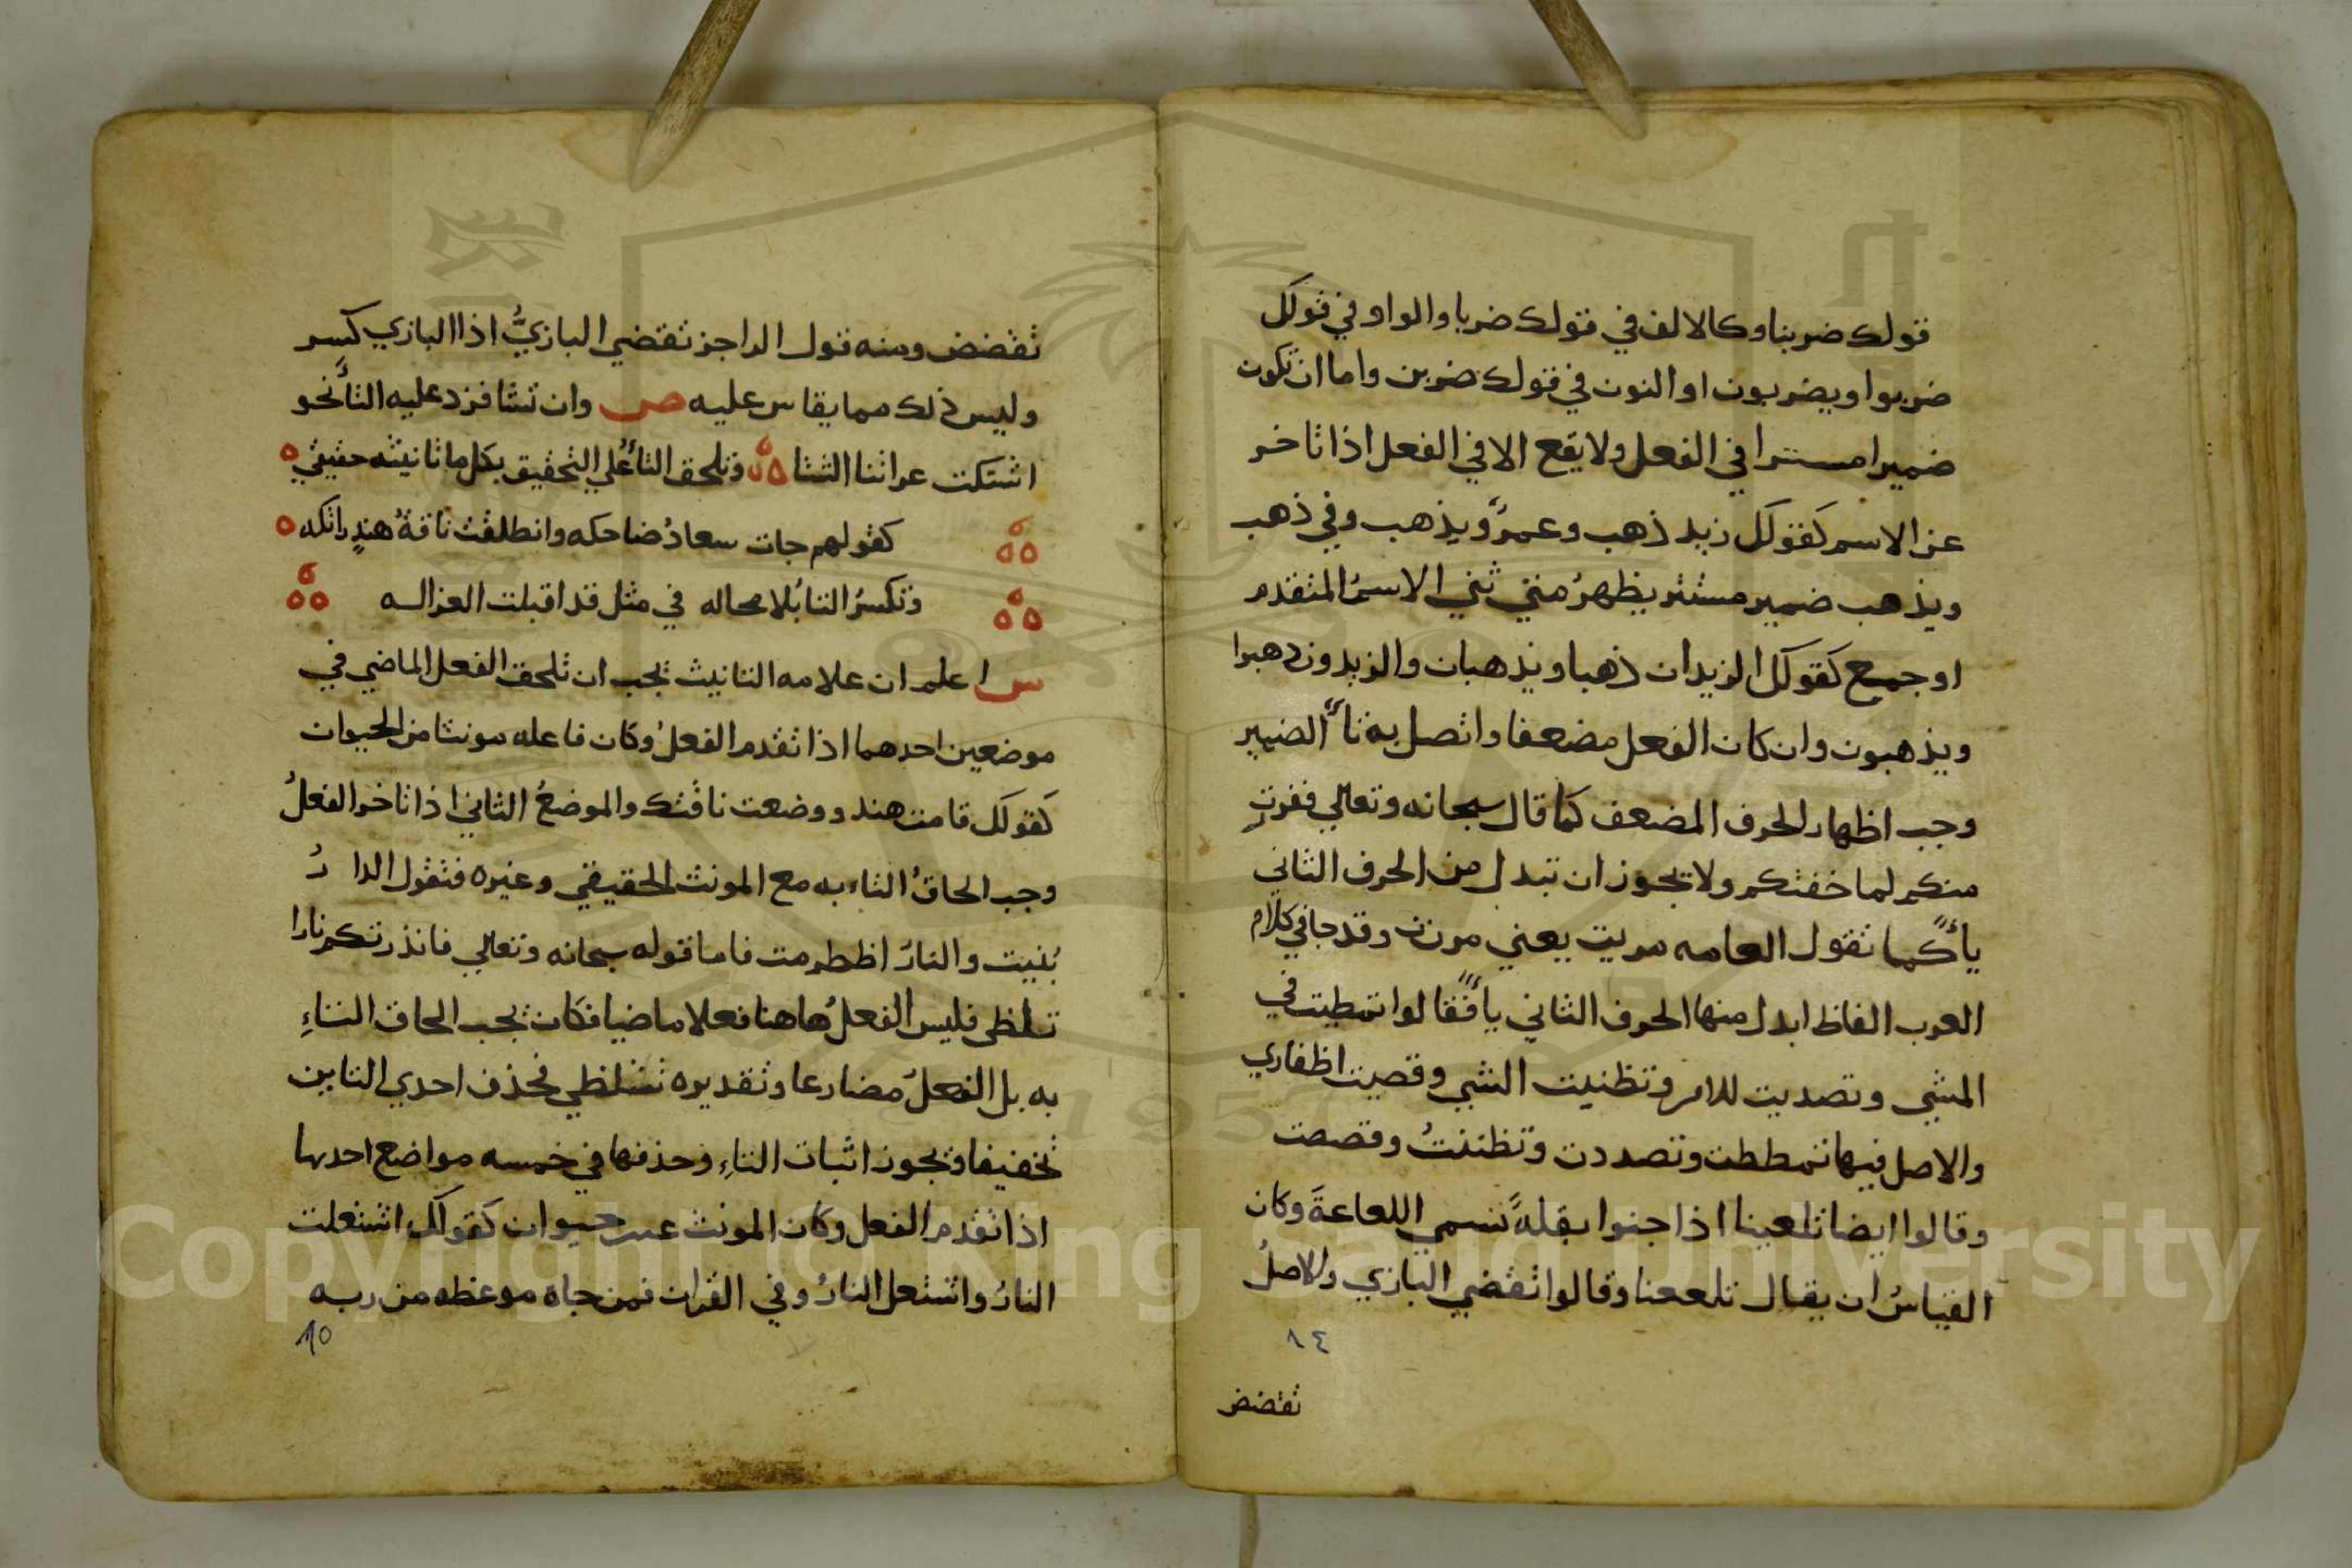 قولك ضربنا وكالالف في قولك ضربا والواو في قولك
ضربوا ويضربون او النون في قولك ضربن واما ان تكون
ضميرا مستترا في الفعل ولا يقع الا في الفعل اذا تاخر
عن الاسم كقولك زيد ذهب وعمرٌو يذهب وفي ذهب
ويذهب ضمير مستتر يظهرُ متي ثني الاسمُ المتقدم
او جمع كقولك الزيدان ذهبا ويذهبان والزيدون ذهبوا
ويذهبون وان كان الفعل مضعفا واتصل به تاءُ الضمير
وجب اظهار الحرف المضعف كما قال سبحانه وتعالي ففررتِ
منكم لما خفتكم ولا يجوز ان تبدل من الحرف الثاني
ياءً كما تقول العامه مريت يعني مررت وقد جا في كلام
العرب الفاظ ابدل منها الحرف الثاني ياءً فقالوا تمطيت في
المشي وتصديت للامر وتظنيت الشي وقصيت اظفاري
والاصل فيها تمططت وتصددت وتظننتُ وقصصت
وقالوا ايضا تلعينا اذا جنوا بقلةً تسمي اللعاعةَ وكان
القياسُ ان يقال تلععنا وقالوا تقضي البازي والاصلُ
١٤
تقضض
تقضض ومنه قول الراجز تقضي البازيُّ اذا البازي كسر
وليس ذلك مما يقاس عليه ص وان تشا فزد عليه التاءَ نحو
اشتكت عراتنا الشتا وتلحق التاءُ علي التحقيق بكل ما تانيثه حقيقي
كقولهم جات سعادُ ضاحكه وانطلقت ناقةُ هندٍ راتكه
وتكسرُ التا بُلا محاله في مثل قد اقبلت الغزاله
س اعلم ان علامه التانيث يجب ان تلحق الفعل الماضي في
موضعين احدهما اذا تقدم الفعلُ وكان فاعله مونثا من الحيوان
كقولك قامت هند ووضعت ناقتك والموضعُ الثاني اذا تاخر الفعلُ
وجب الحاقُ التاء به مع المونث الحقيقي وغيره فتقول الدارُ
بُنيت والنارُ اظطرمت فاما قوله سبحانه وتعالي فانذرتكم نارا
تلظى فليس الفعلُ هاهنا فعلا ماضيا فكان يجب الحاق التاءِ
به بل الفعلُ مضارعا وتقديره تتلظي فحذف احدي التاين
تخفيفا ويجوز اثبات التاءِ وحذفها في خمسه مواضع احدها
اذا تقدم الفعل وكان المونث غير حيوان كقولك اشتعلت
النارُ واشتعل النارُ وفي القران فمن جاه موعظه من ربه
١٥
Copyright © King Saud University
1957